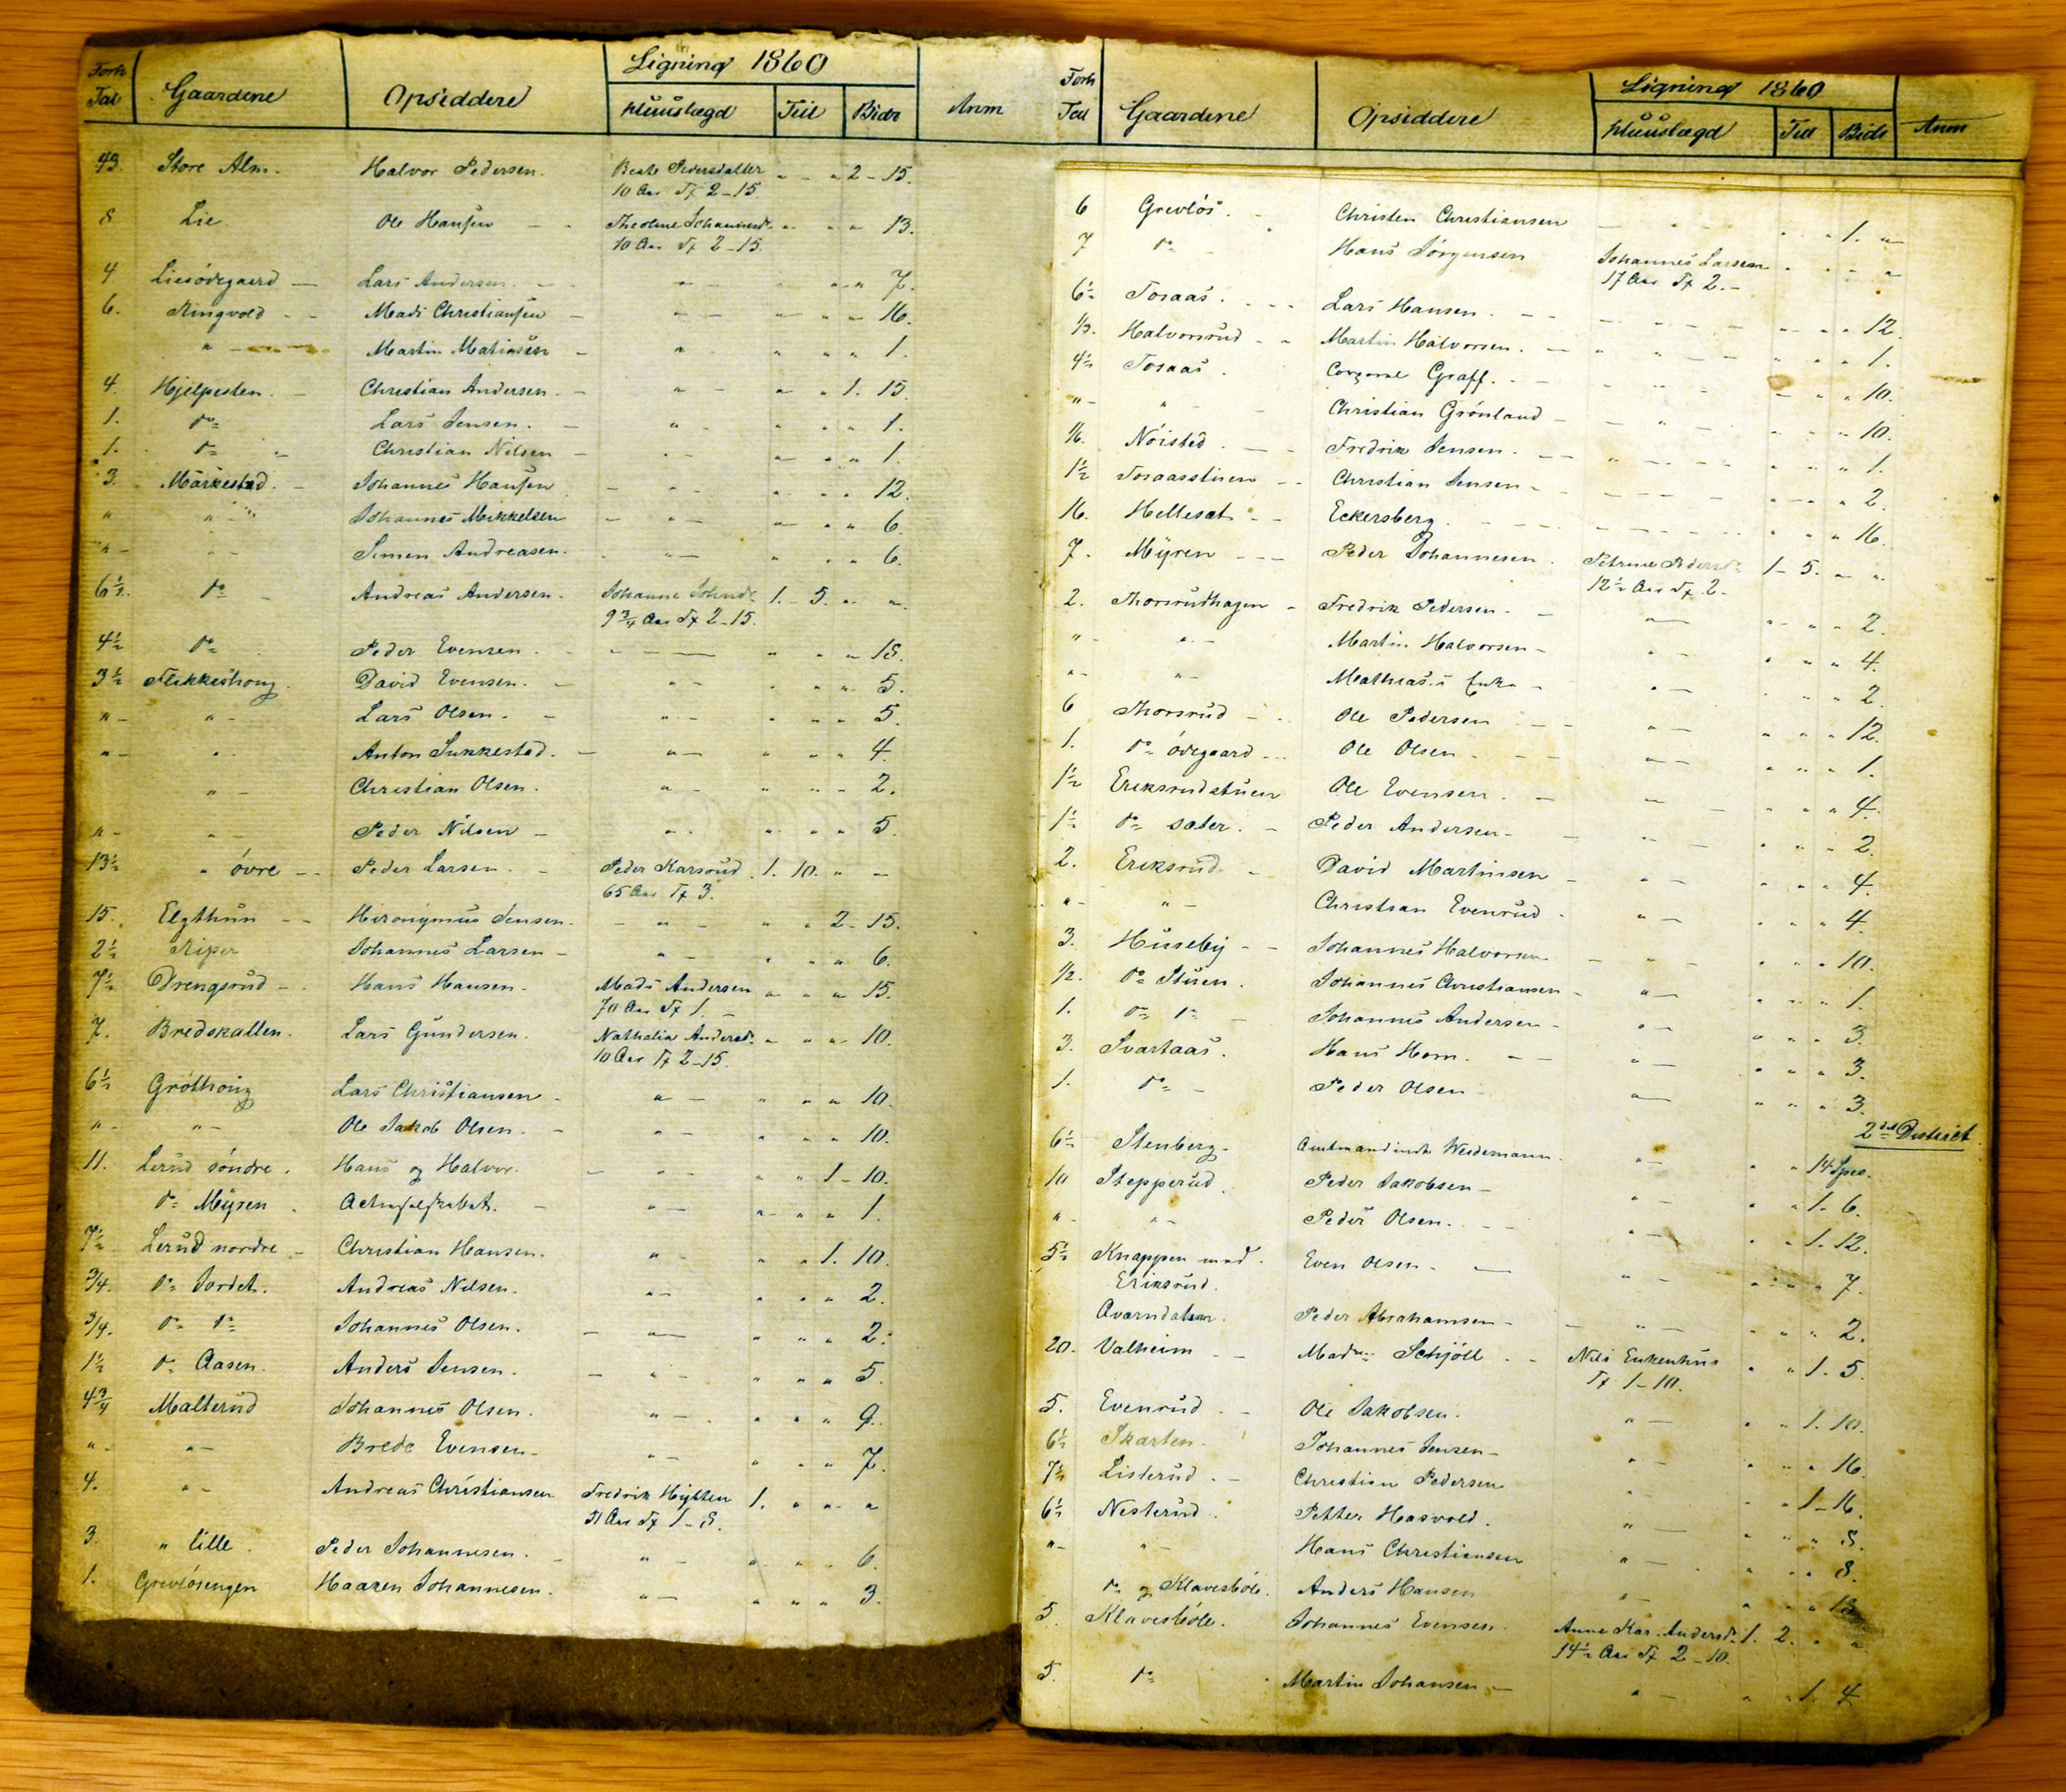 Ligning 1860
Forh Tal Gaardene Opsiddere Huuslægd Till Bidr Anm
43. Store Alm. Halvor Pedersen. Beate Pedersdatter " " 2-15.
10 Aar Tx 2-15.
8 Lie. Ole Hansen " " " 13.
10 Aar Tx 2-15.
4 Liesödegaard Lars Andersen. " " " " 7.
6. Ringvold Mads Christiansen " " " " 16.
" Martin Matiasen " " " " 1.
4. Hjelpesten. Christian Andersen. " " " 1. 15.
1. do Lars Jensen. " " " " 1.
1. do Christian Nilsen " " " 1.
3. Markestad. Johannes Hansen " " " 12.
" " Johannes Mikkelsen " " " " 6.
" " Simen Andreasen. " " " " 6.
6½. do Andreas Andersen. Johanne Johnsdr 1. 5. " "
9¾ Aar Tx 2-15.
4½ do Peder Evensen. " " " 18.
3½ Flikkeshoug. David Evensen. " " " " 5.
" " Lars Olsen. " " " " 5.
" " Anton Sukkestad. " " " " 4.
" Christian Olsen. " " " " 2.
" " Peder Nilsen " " " " 5.
13½ " övre Peder Larsen. Peder Karsrud. 1. 10. " "
65 Aar Tx 3.
15. Elgthun Hieronymus Jensen. " " " 2-15.
2½ Riper Johannes Larsen " " " " 6.
7½ Drengsrud Hans Hansen. Mads Andersen " " " 15.
70 Aar Tx 1.
7. Bredskallen. Lars Gundersen. Nathalia Andersd. " " " 10.
10 Aar Tx 2-15.
6½ Gröthoug Lars Christiansen " " " " 10.
" " Ole Jakob Olsen. " " " " 10.
11. Lerud söndre. Hans og Halvor. " " " 1-10.
do Myren. " " " " 1.
7½ Lerud nordre Christian Hansen. " " " 1. 10.
3/4. do Jordet. Andreas Nilsen. " " " " 2.
3/4. do do Johannes Olsen. " " " " 2.
1½ do Aasen. Anders Jensen. " " " " 5.
4¾ Malterud Johannes Olsen. " " " " 9.
" " Brede Evensen " " " " 7.
4. " Andreas Christiansen Fredrik Hytten 1. " " "
Aar Tx 1-8.
3. " lille. Peder Johannesen. " " " " 6.
1. Grevlösengen Haagen Johannesen. " " " " 3.
Ligning 1860
Forh Tal Gaardene Opsiddere Huuslægd Till Bidr Anm
6 Grevlös. Christen Christiansen " " " 1. "
7 do Hans Jörgensen Johannes Larsen " " " "
17 Aar Tx 2.
6½ Tosaas. Lars Hansen. " " " 12.
1/3. Halvorsrud Martin Halvorsen. " " " " 1.
4½ Tosaas. Graff. " " " " 10.
" " Christian Grönland " " " " 10.
1/6. Nöisted Fredrik Jensen. " " " " 1.
1½ Tosaasstuen Christian Jensen " " " 2.
16. Hellesæt Eckersberg. " " " 16.
7. Myren Peder Johannesen. Petrine Pedersdr 1-5. " "
12½ Aar Tx 2.
2. Thorsrudhagen Fredrik Pedersen. " " " " 2.
" " Martin Halvorsen " " " " 4.
" " Mathias's Enke " " " " 2.
6 Thorsrud Ole Pedersen " " " " 12.
1. do ödegaard Ole Olsen " " " " 1.
1½ Eriksrudstuen Ole Evensen. " " " " 4.
1½ do sæter. Peder Andersen " " " " 2.
2. Eriksrud David Martinsen " " " " 4.
" " Christian Evenrud " " " " 4.
3. Huseby Johannes Halvorsen " " " " 10.
1/2. do Stuen. Johannes Christiansen " " " " 1.
1. do do Johannes Andersen " " " " 3.
3. Svartaas. Hans Horn. " " " " 3.
1. do Peder Olsen " " " " 3.
2det District.
6½ Stenberg. Amtmandinde Weidemann. " " " 14 Spd.
10 Stepperud. Peder Jakobsen " " " 1. 6.
" " Peder Olsen. " " " 1. 12.
5½ Knappen med Even Olsen. " " " " 7.
Eriksrud.
Qvarndalen. Peder Abrahamsen " " " " 2.
20. Valheim Madme Schjöll Nils Enkenhus " " 1. 5.
Tx 1-10.
5. Evenrud Ole Jakobsen. " " " 1. 10.
6½ Skarten. Johannes Jensen " " " " 16.
7½ Listerud. Christian Pedersen " " " 1-16.
6½ Nesterud. Petter Hasvold. " " " " 8.
" " Hans Christiansen " " " " 8.
do og Klavesböle. Anders Hansen " " " "
5. Klavesböle. Johannes Evensen. Anne Kar. Andersdr. 1. 2. " "
14½ Aar Tx 2-10.
5. do Martin Johansen " " " 1. 4.